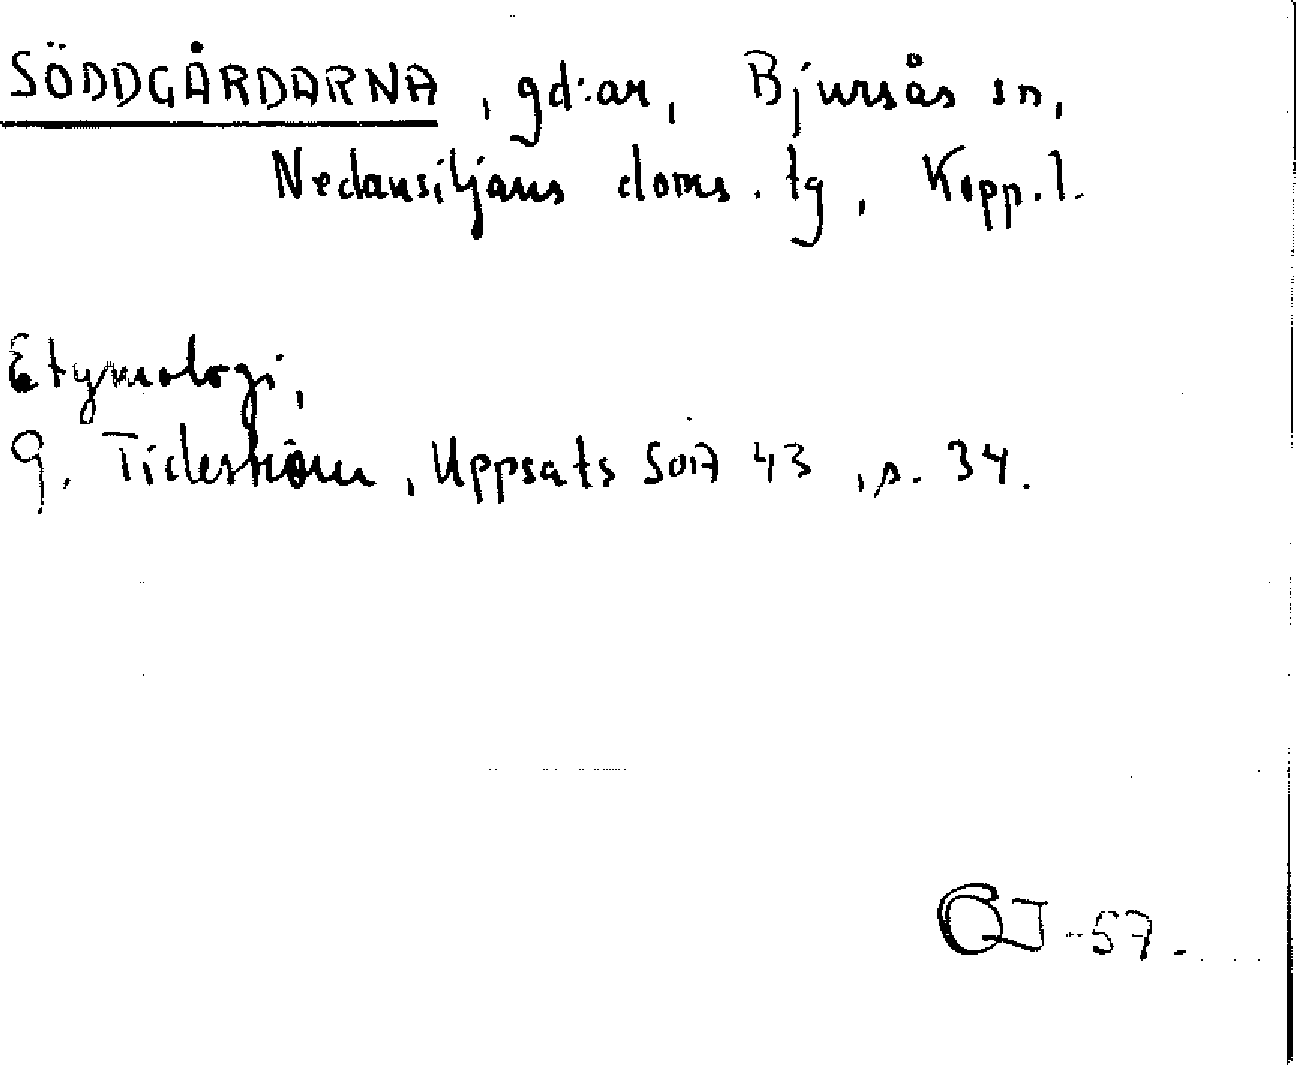 SÖDDGÅRDARNA, gd:ar, Bjursås sn,
Nedansiljans doms. tg, Kopp.l.
Etymologi,
G. Tideström, Uppsats SOA 43, s. 34.
-57-